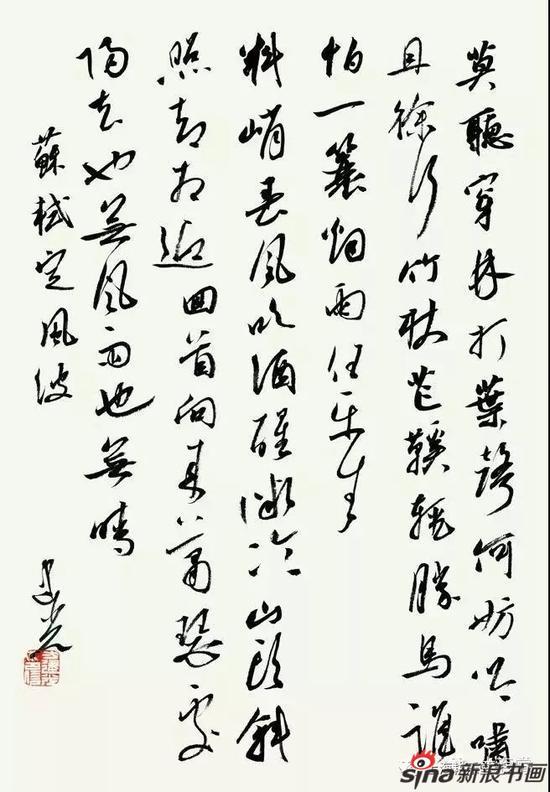 莫聽穿林打葉聲何妨吟嘯
且徐行竹杖芒鞵輕勝馬誰
怕一蓑烟雨任平生
料峭春風吹酒醒微冷山頭斜
照却相迎回首向來蕭瑟處
歸去也無風雨也無晴
蘇軾定風波
sina新浪书画